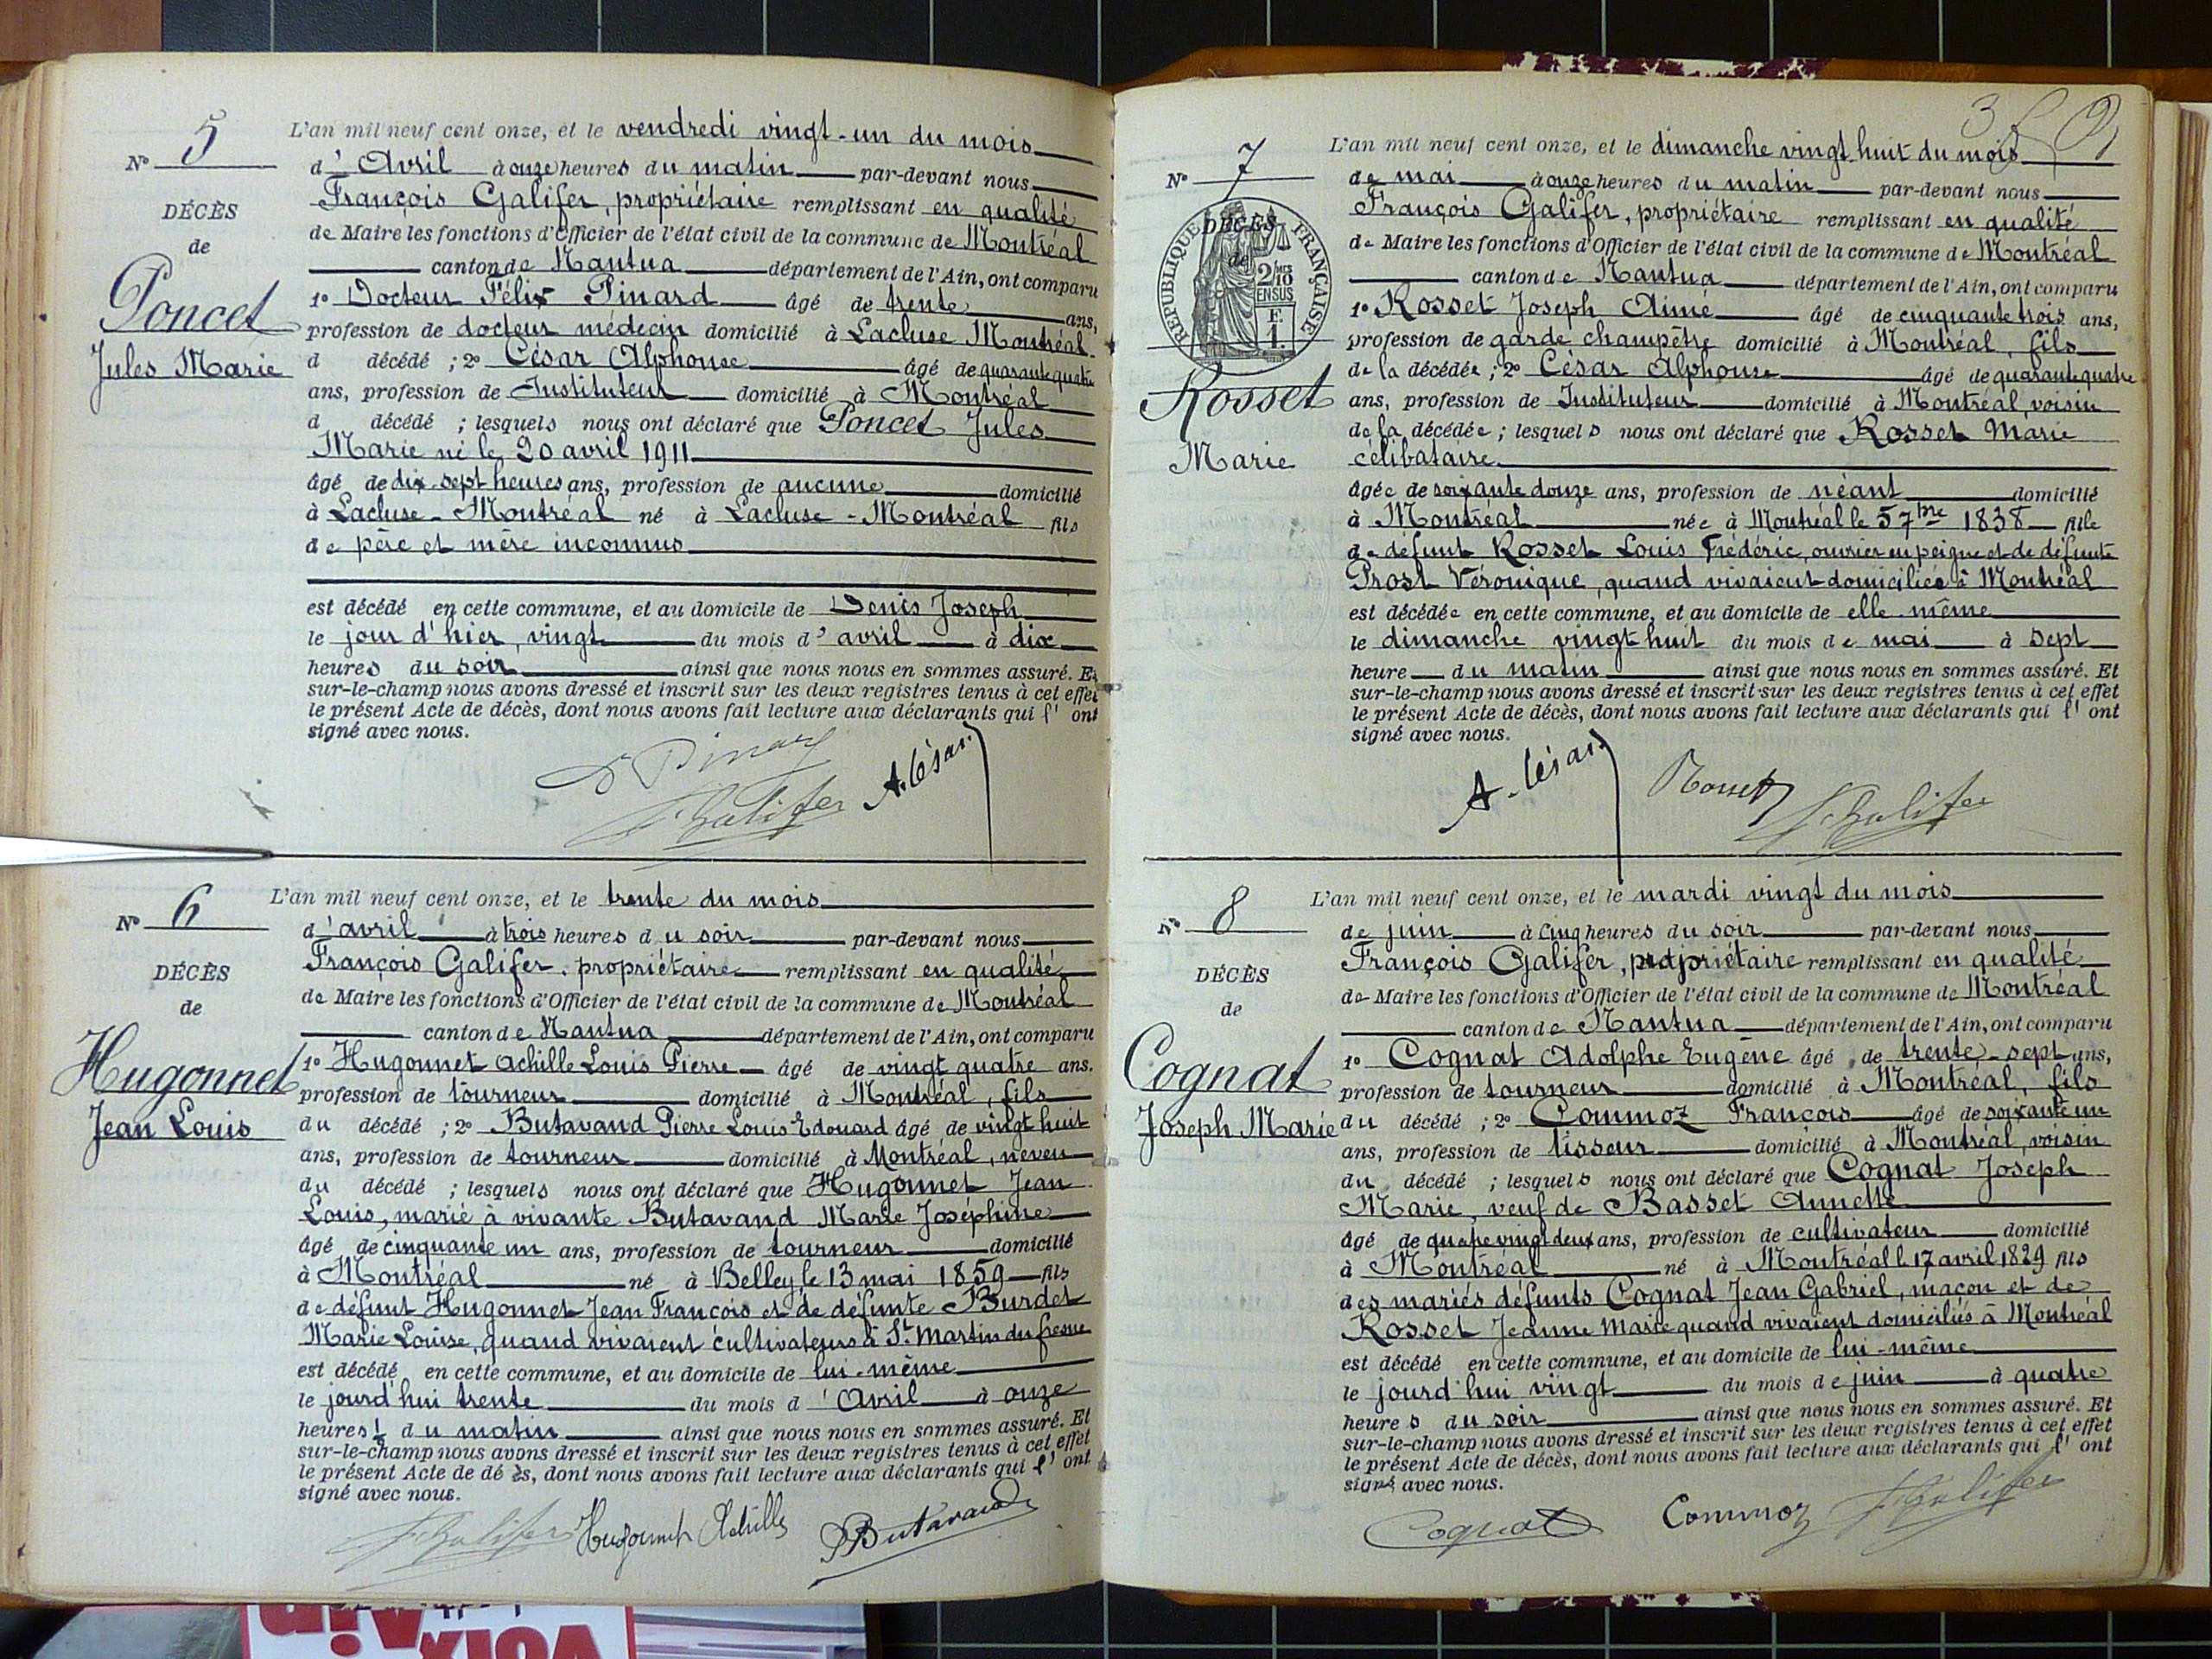 N° 5
DÉCÈS
de
Poncet
Jules Marie
L'an mil neuf cent onze, et le vendredi vingt-un du mois
d'Avril à onze heures du matin par-devant nous
François Galifer, propriétaire remplissant en qualité
de Maire les fonctions d'Officier de l'état civil de la commune de Montréal
canton de Nantua département de l'Ain, ont comparu
1° Docteur Félix Pinard âgé de trente ans,
profession de docteur médecin domicilié à Lacluse Montréal
d décédé ; 2° César Alphonse âgé de quarante quatre
ans, profession de Instituteur domicilié à Montréal
d décédé ; lesquels nous ont déclaré que Poncet Jules
Marie né le 20 avril 1911
âgé de dix-sept heures ans, profession de aucune domicilié
à Lacluse-Montréal né à Lacluse-Montréal fils
de père et mère inconnus
est décédé en cette commune, et au domicile de Denis Joseph
le jour d'hier, vingt du mois d'avril à dix
heures du soir ainsi que nous nous en sommes assuré. Et
sur-le-champ nous avons dressé et inscrit sur les deux registres tenus à cet effet
le présent Acte de décès, dont nous avons fait lecture aux déclarants qui l'ont
signé avec nous.
D Pinard
F. Galifer A. César
N° 6
DÉCÈS
de
Hugonnet
Jean Louis
L'an mil neuf cent onze, et le trente du mois
d'avril à trois heures du soir par-devant nous
François Galifer, propriétaire remplissant en qualité
de Maire les fonctions d'Officier de l'état civil de la commune de Montréal
canton de Nantua département de l'Ain, ont comparu
1° Hugonnet Achille Louis Pierre âgé de vingt quatre ans.
profession de tourneur domicilié à Montréal, fils
du décédé ; 2° Butavand Pierre Louis Edouard âgé de vingt huit
ans, profession de tourneur domicilié à Montréal, neveu
du décédé ; lesquels nous ont déclaré que Hugonnet Jean
Louis, marié à vivante Butavand Marie Josephine
âgé de cinquante un ans, profession de tourneur domicilié
à Montréal né à Belley le 13 mai 1859 fils
de défunt Hugonnet Jean François et de défunte Burdet
Marie Louise, quand vivaient cultivateurs à St Martin du fresne
est décédé en cette commune, et au domicile de lui-même
le jourd'hui trente du mois d'Avril à onze
heures ½ du matin ainsi que nous nous en sommes assuré. Et
sur-le-champ nous avons dressé et inscrit sur les deux registres tenus à cet effet
le présent Acte de dé ès, dont nous avons fait lecture aux déclarants qui l'ont
signé avec nous.
F. Galifer Hugonnet Achille Butavand
N° 7
DÉCÈS
de
RÉPUBLIQUE FRANÇAISE
2/10
EN SUS
1F.
Rosset
Marie
L'an mil neuf cent onze, et le dimanche vingt huit du mois
de mai à onze heures du matin par-devant nous
François Galifer, propriétaire remplissant en qualité
de Maire les fonctions d'Officier de l'état civil de la commune de Montréal
canton de Nantua département de l'Ain, ont comparu
1° Rosset Joseph Aimé âgé de cinquante trois ans,
profession de garde champêtre domicilié à Montréal, fils
de la décédée ; 2° César Alphonse âgé de quarante quatre
ans, profession de Instituteur domicilié à Montréal, voisin
de la décédée ; lesquels nous ont déclaré que Rosset Marie
célibataire
âgée de soixante douze ans, profession de néant domicilié
à Montréal née à Montréal le 5 7bre 1838 fille
de défunt Rosset Louis Frédéric, ouvrier en peigne et de défunte
Prost Véronique, quand vivaient domiciliés à Montréal
est décédée en cette commune, et au domicile de elle-même
le dimanche vingt huit du mois de mai à sept
heure du matin ainsi que nous nous en sommes assuré. Et
sur-le-champ nous avons dressé et inscrit sur les deux registres tenus à cet effet
le présent Acte de décès, dont nous avons fait lecture aux déclarants qui l'ont
signé avec nous.
A. César Rosset F. Galifer
N° 8
DÉCÈS
de
Cognat
Joseph Marie
L'an mil neuf cent onze, et le mardi vingt du mois
de juin à cinq heures du soir par-devant nous
François Galifer, propriétaire remplissant en qualité
de Maire les fonctions d'Officier de l'état civil de la commune de Montréal
canton de Nantua département de l'Ain, ont comparu
1° Cognat Adolphe Eugène âgé de trente-sept ans,
profession de tourneur domicilié à Montréal, fils
du décédé ; 2° Commoz François âgé de soixante un
ans, profession de tisseur domicilié à Montréal, voisin
du décédé ; lesquels nous ont déclaré que Cognat Joseph
Marie, veuf de Basset Annette
âgé de quatre vingt deux ans, profession de cultivateur domicilié
à Montréal né à Montréal le 17 avril 1829 fils
des mariés défunts Cognat Jean Gabriel, maçon et de
Rosset Jeanne Marie quand vivaient domiciliés à Montréal
est décédé en cette commune, et au domicile de lui-même
le jourd'hui vingt du mois de juin à quatre
heures du soir ainsi que nous nous en sommes assuré. Et
sur-le-champ nous avons dressé et inscrit sur les deux registres tenus à cet effet
le présent Acte de décès, dont nous avons fait lecture aux déclarants qui l'ont
signé avec nous.
Cognat Commoz F. Galifer
voix
Ain